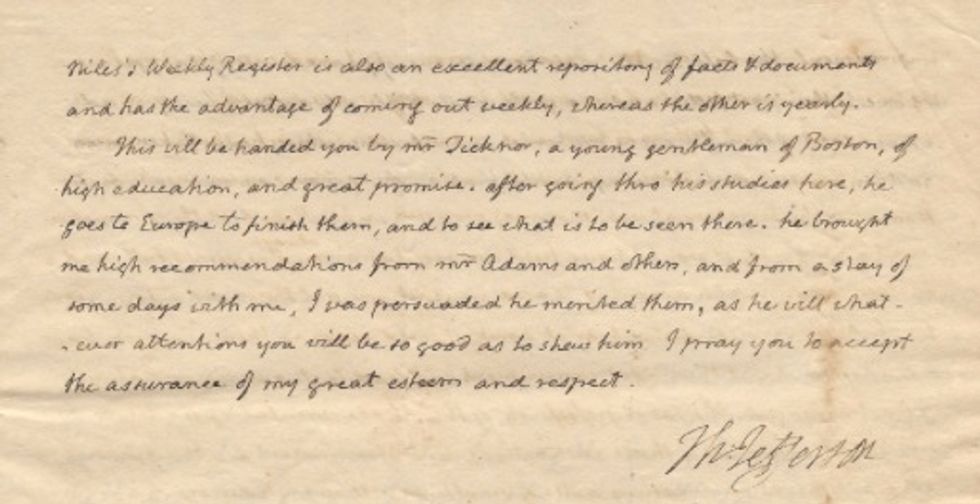 Niles's Weekly Register is also an excellent repository of facts & documents
and has the advantage of coming out weekly, whereas the other is yearly.
This will be handed you by mr Ticknor, a young gentleman of Boston, of
high education, and great promise. after going thro' his studies here, he
goes to Europe to finish them, and to see what is to be seen there. he brought
me high recommendations from mr Adams and others, and from a stay of
some days with me, I was persuaded he merited them, as he will what-
-ever attentions you will be so good as to shew him I pray you to accept
the assurance of my great esteem and respect.
Th: Jefferson